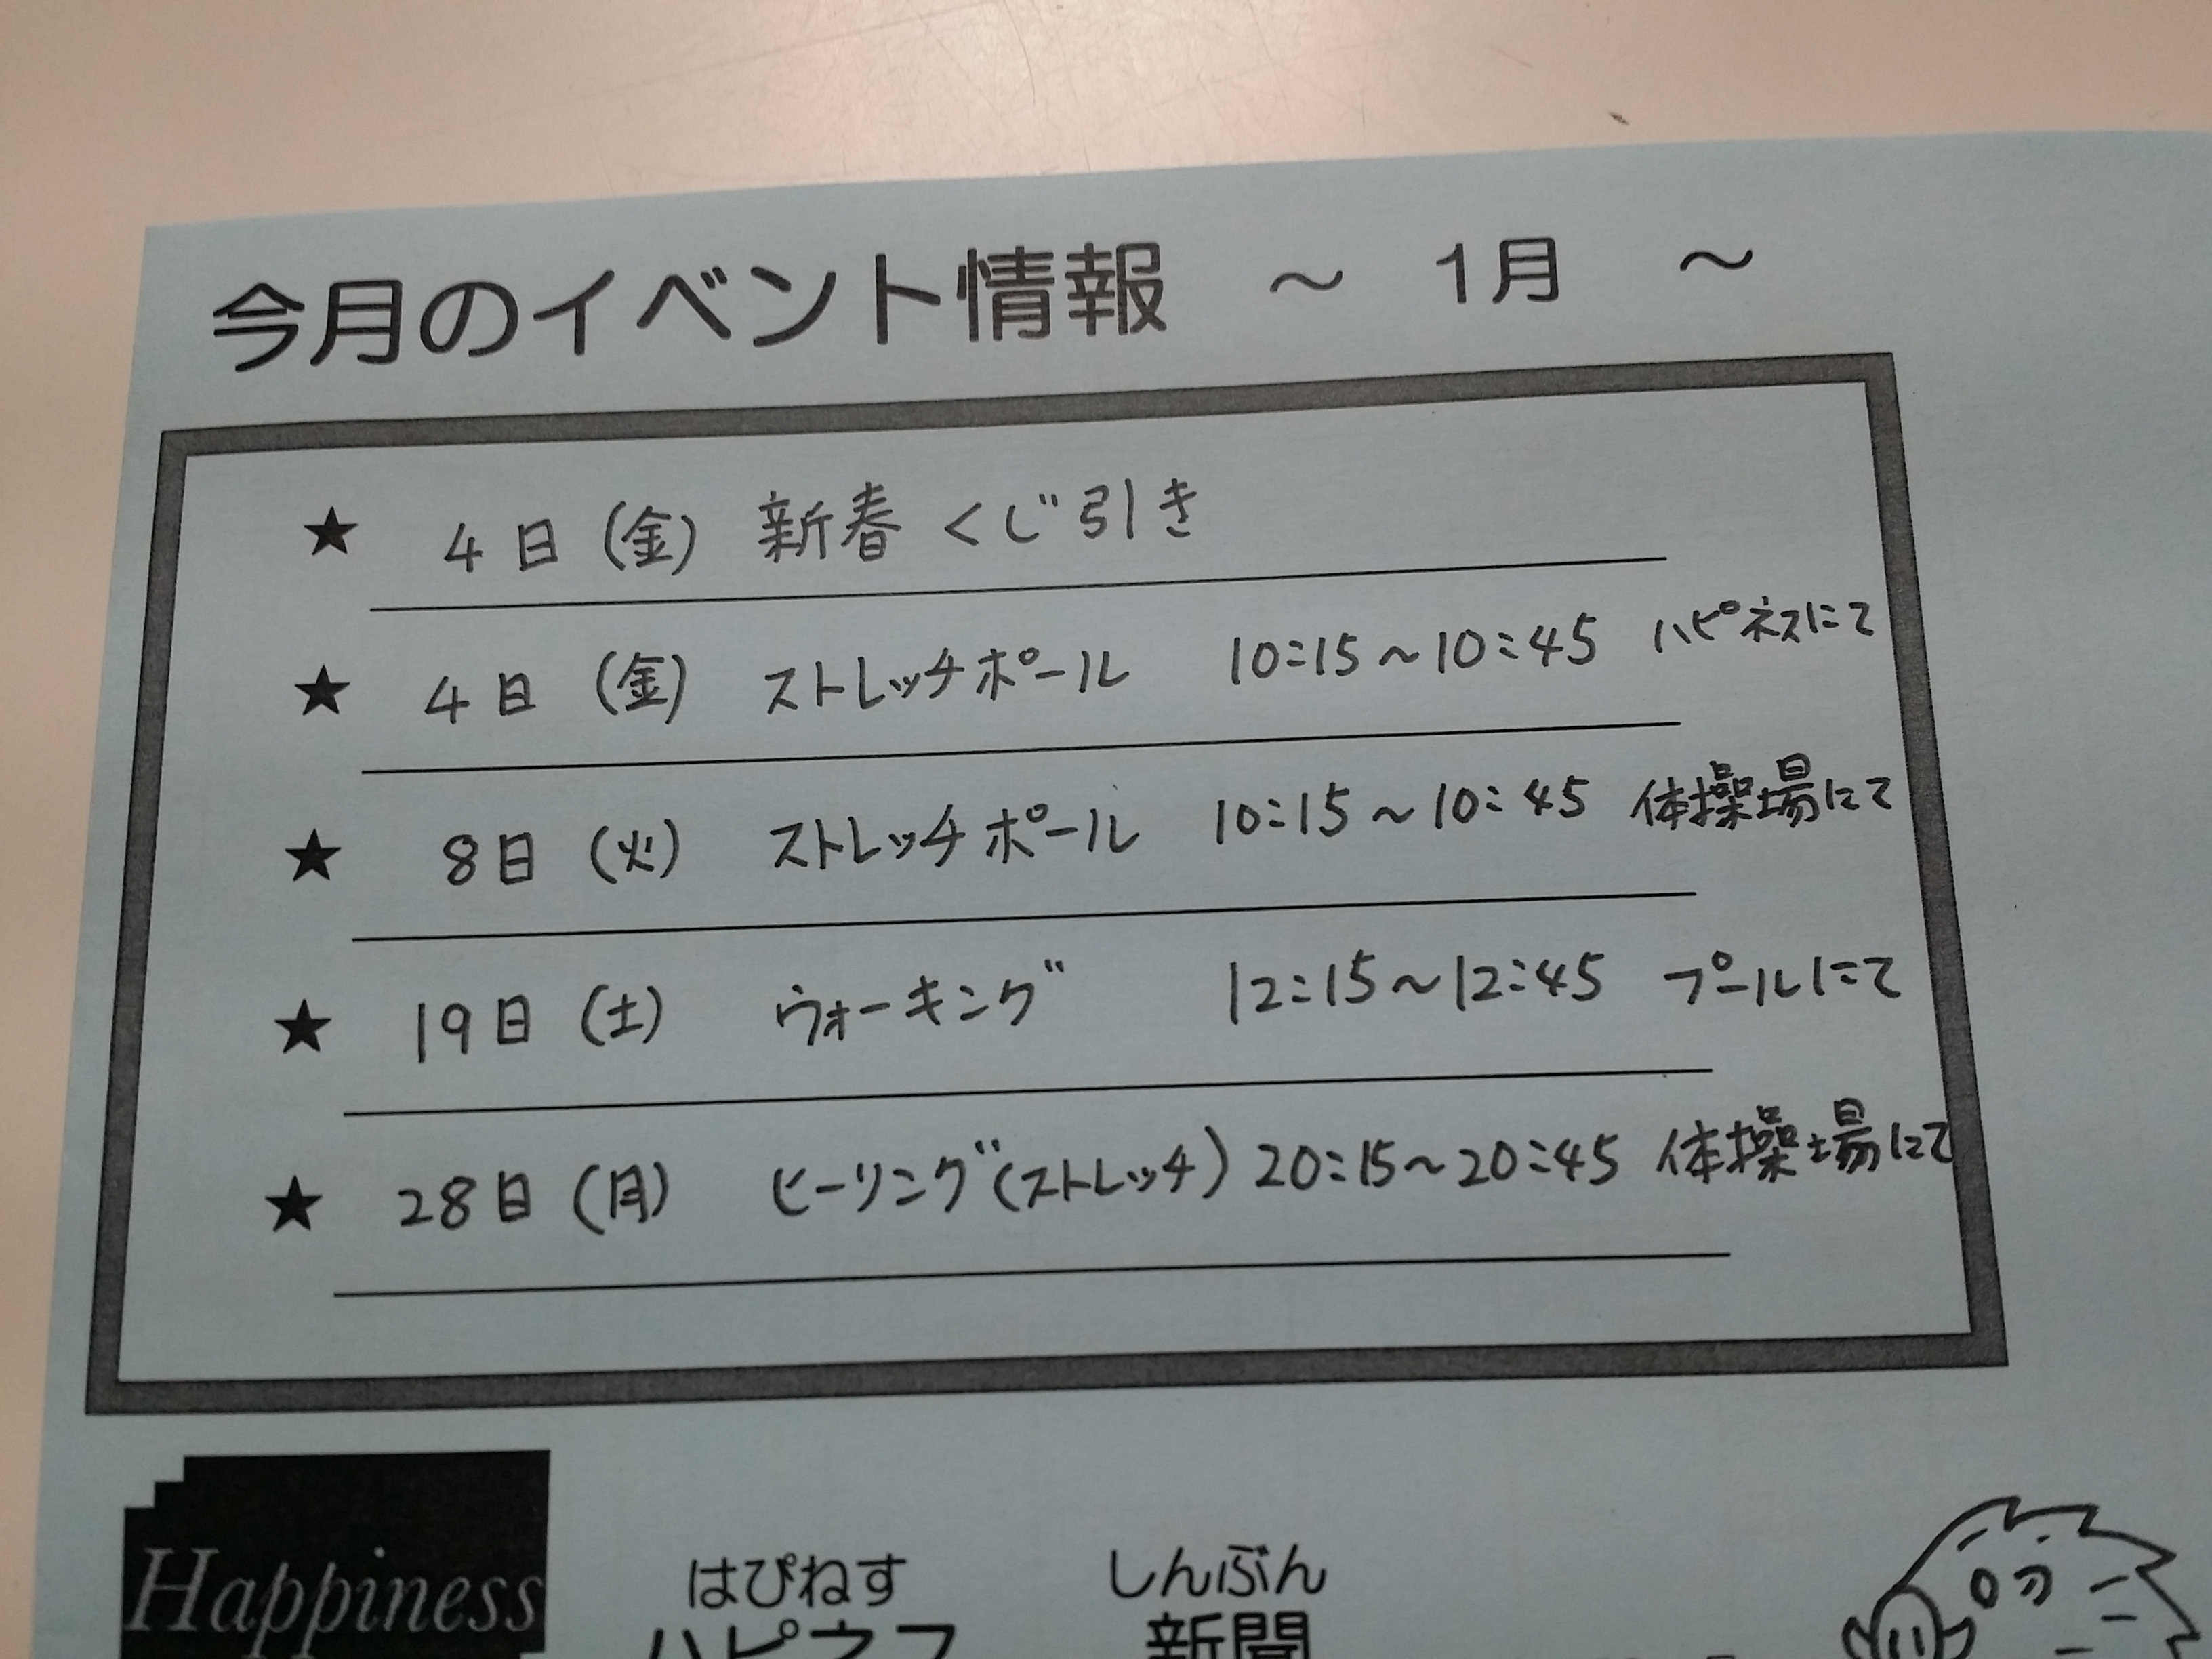 今月のイベント情報 ～ 1月 ～
★ 4日(金) 新春くじ引き
★ 4日(金) ストレッチポール 10:15～10:45 ハピネスにて
★ 8日(火) ストレッチポール 10:15～10:45 体操場にて
★ 19日(土) ウォーキング 12:15～12:45 プールにて
★ 28日(月) ヒーリング(ストレッチ) 20:15～20:45 体操場にて
Happiness
はぴねす しんぶん
ハピネス 新聞